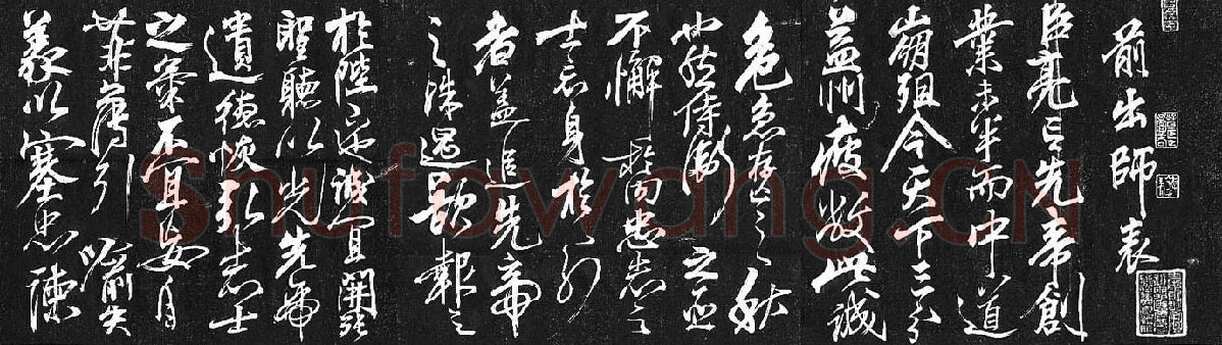 前出師表
臣亮言先帝創
業未半而中道
崩殂今天下三分
益州疲敝此誠
危急存亡之秋
也然侍衛之臣
不懈於內忠志之
士忘身於外
者蓋追先帝
之殊遇欲報之
於陛下也誠宜開張
聖聽以光先帝
遺德恢弘志士
之氣不宜妄自
菲薄引喻失
義以塞忠諫
Shufawang.CN